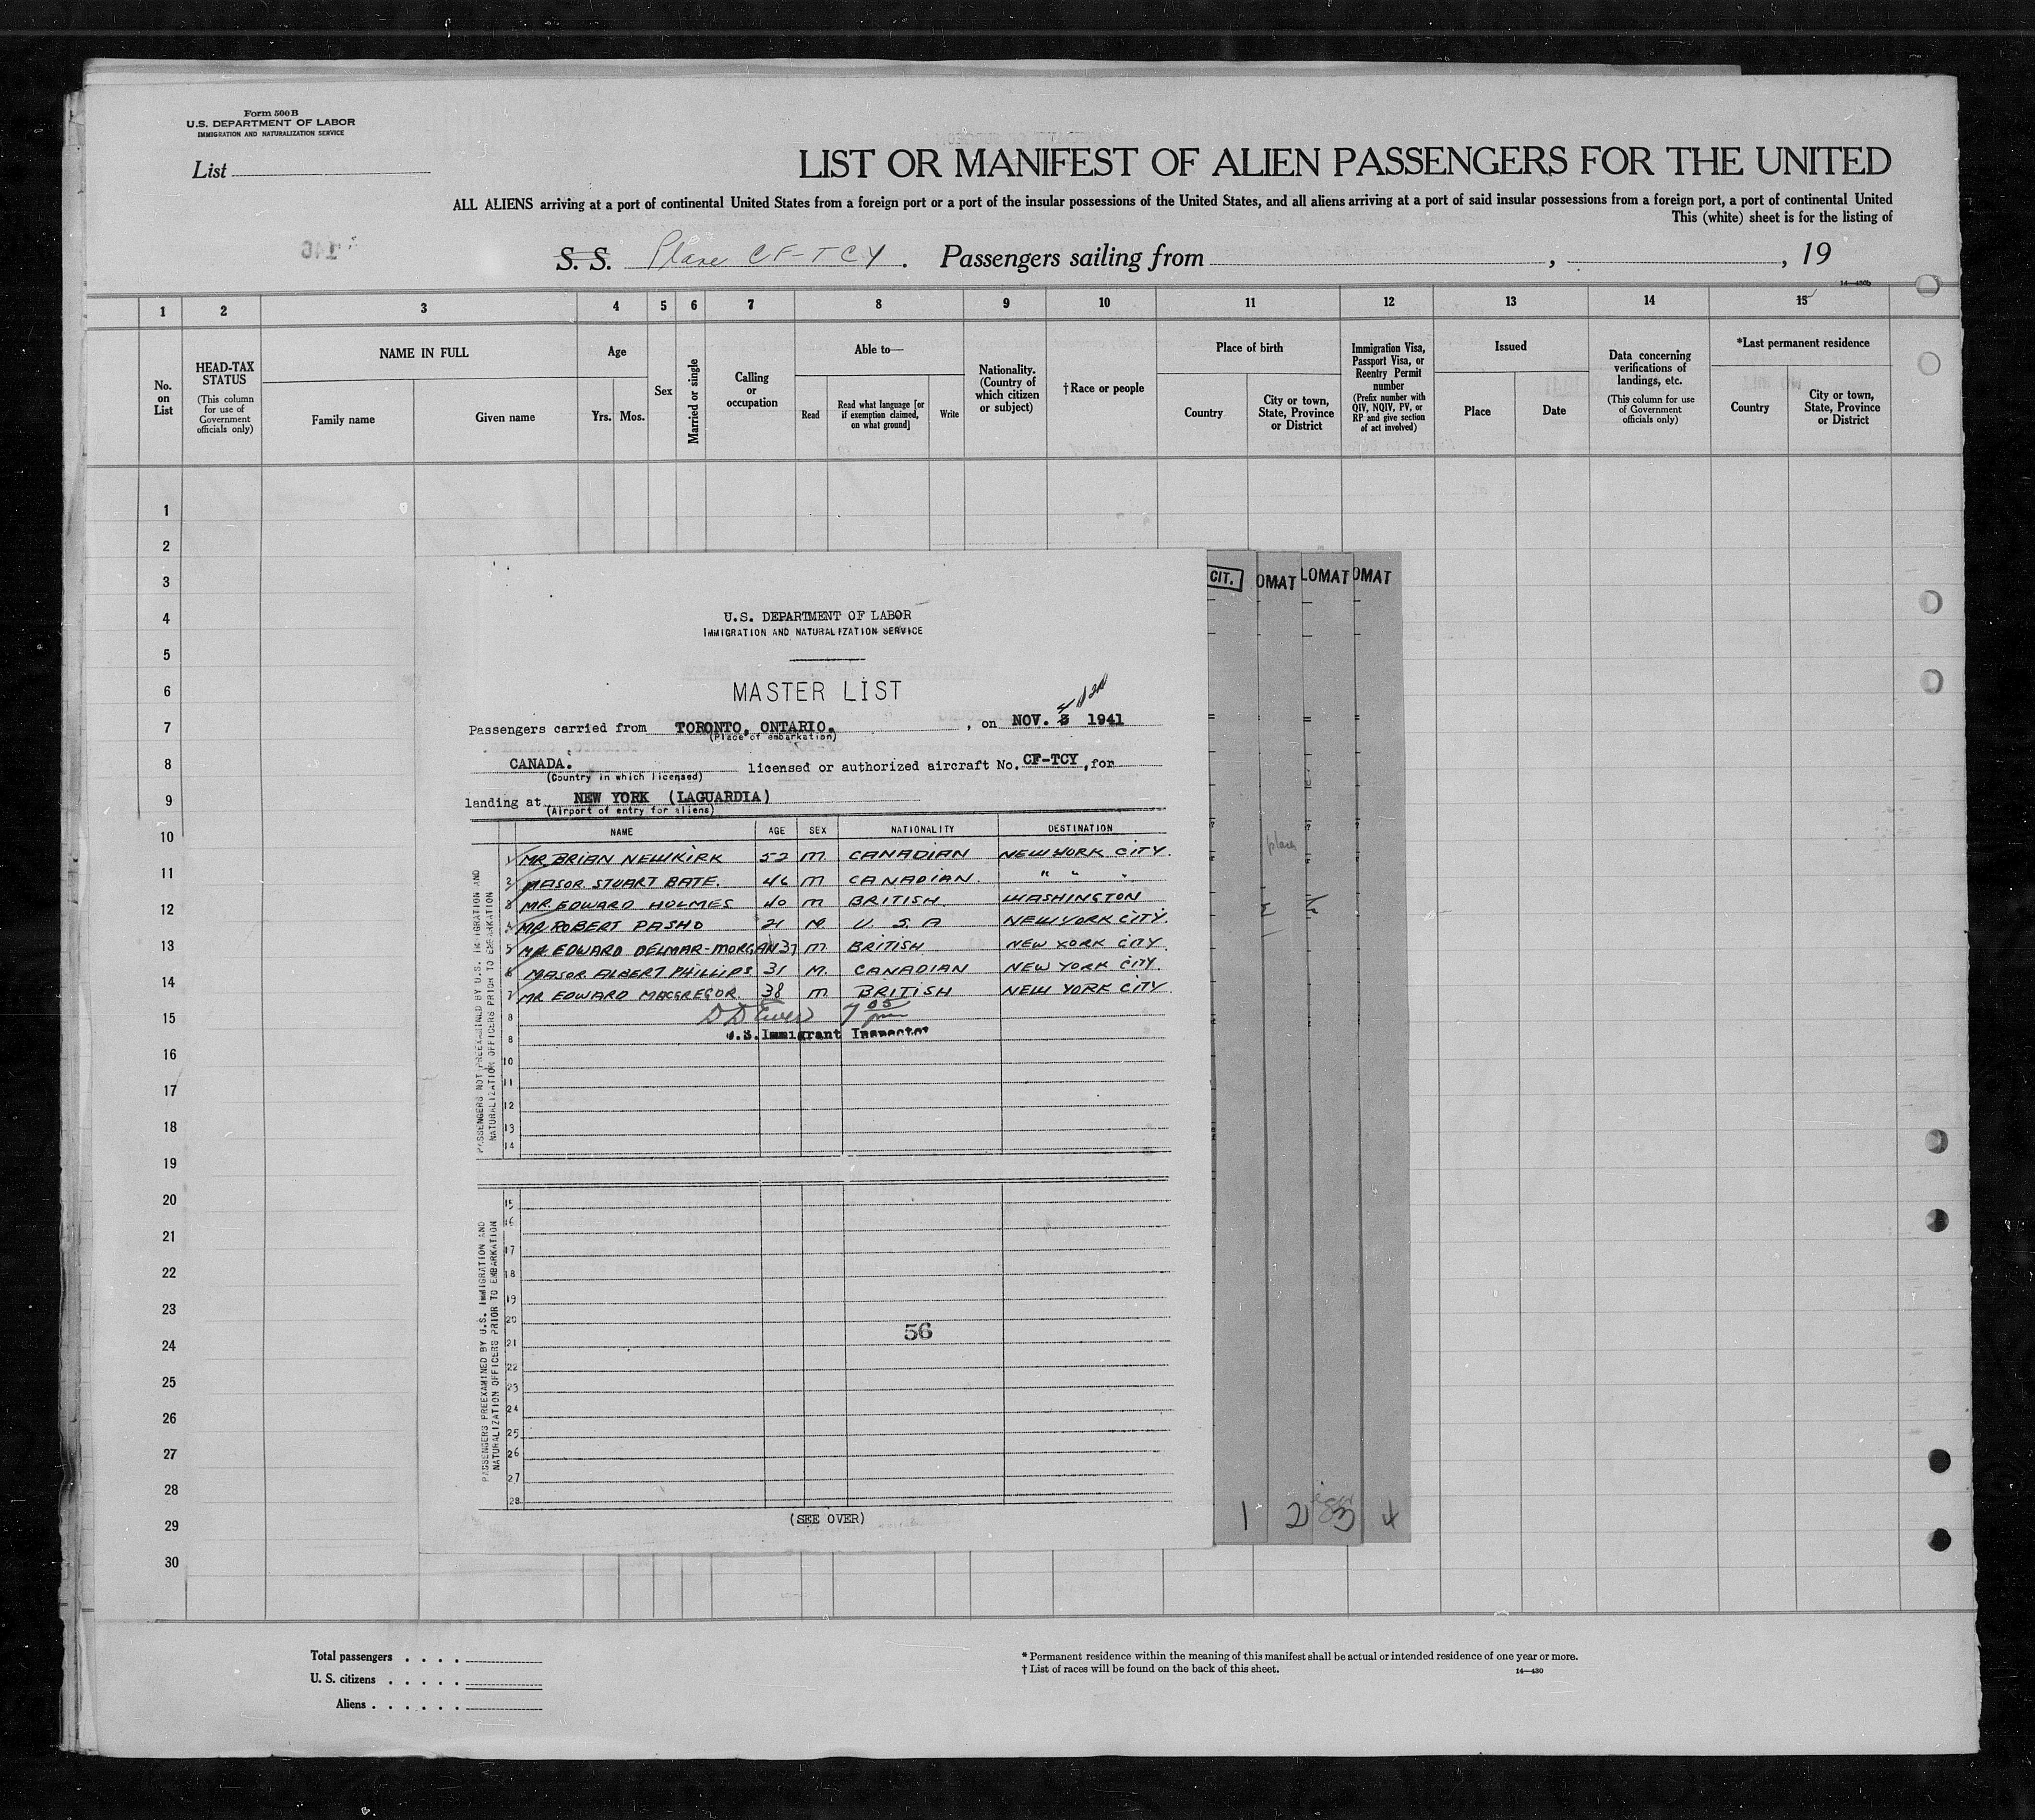 Form 500 B
U.S. DEPARTMENT OF LABOR
IMMIGRATION AND NATURALIZATION SERVICE
List
LIST OR MANIFEST OF ALIEN PASSENGERS FOR THE UNITED
ALL ALIENS arriving at a port of continental United States from a foreign port or a port of the insular possessions of the United States, and all aliens arriving at a port of said insular possessions from a foreign port, a port of continental United
This (white) sheet is for the listing of
S. S. Plane CF-TCY. Passengers sailing from , , 19
14—430b
1 2 3 4 5 6 7 8 9 10 11 12 13 14 15
No. on List
HEAD-TAX STATUS
(This column for use of Government officials only)
NAME IN FULL
Family name
Given name
Age
Yrs. Mos.
Sex
Married or single
Calling or occupation
Able to—
Read
Read what language [or if exemption claimed, on what ground]
Write
Nationality. (Country of which citizen or subject)
†Race or people
Place of birth
Country
City or town, State, Province or District
Immigration Visa, Passport Visa, or Reentry Permit number
(Prefix number with QIV, NQIV, PV, or RP and give section of act involved)
Issued
Place
Date
Data concerning verifications of landings, etc.
(This column for use of Government officials only)
*Last permanent residence
Country
City or town, State, Province or District
1
2
3
4
5
6
7
8
9
10
11
12
13
14
15
16
17
18
19
20
21
22
23
24
25
26
27
28
29
30
U.S. DEPARTMENT OF LABOR
IMMIGRATION AND NATURALIZATION SERVICE
MASTER LIST
Passengers carried from TORONTO, ONTARIO. , on NOV. 3 1941
(Place of embarkation)
CANADA. licensed or authorized aircraft No. CF-TCY, for
(Country in which licensed)
landing at NEW YORK (LAGUARDIA)
(Airport of entry for aliens)
NAME AGE SEX NATIONALITY DESTINATION
1 MR. BRIAN NEWKIRK 52 M CANADIAN NEW YORK CITY.
2 MAJOR. STUART BATE. 46 M CANADIAN. " " "
3 MR. EDWARD HOLMES 40 M BRITISH. WASHINGTON
4 MR. ROBERT PASHO 21 M. U. S. A NEW YORK CITY.
5 MR. EDWARD DELMAR-MORGAN 37 M BRITISH NEW YORK CITY.
6 MAJOR ALBERT PHILLIPS 31 M. CANADIAN NEW YORK CITY.
7 MR EDWARD MACGREGOR. 38 M BRITISH NEW YORK CITY.
8 7 05 pm
8 U.S. Immigrant Inspector
10
11
12
13
14
PASSENGERS NOT PREEXAMINED BY U.S. IMMIGRATION AND
NATURALIZATION OFFICERS PRIOR TO EMBARKATION
15
16
17
18
19
20
21
22
23
24
25
26
27
28
PASSENGERS PREEXAMINED BY U.S. IMMIGRATION AND
NATURALIZATION OFFICERS PRIOR TO EMBARKATION
56
(SEE OVER)
CIT. OMAT LOMAT OMAT
place
1 2 3 4
Total passengers . . . .
U. S. citizens . . . . .
Aliens . . . . . .
* Permanent residence within the meaning of this manifest shall be actual or intended residence of one year or more.
† List of races will be found on the back of this sheet.
14—430